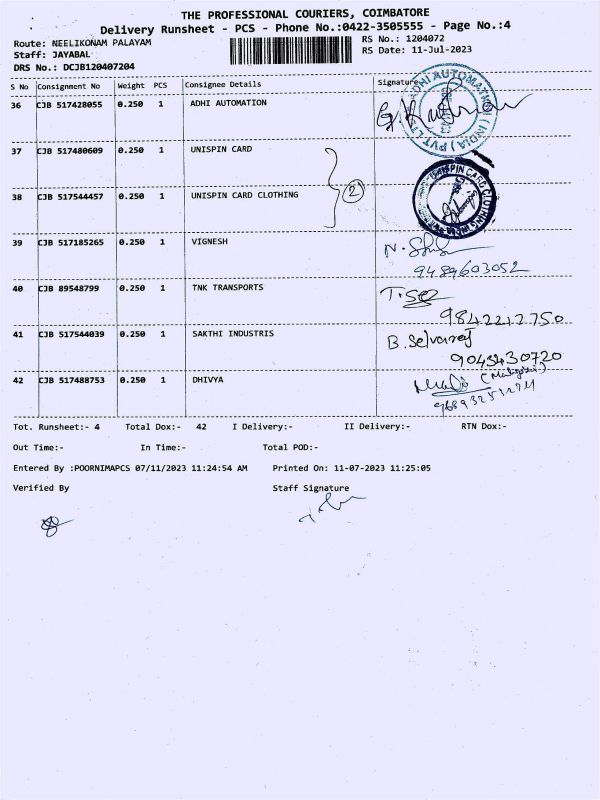 THE PROFESSIONAL COURIERS, COIMBATORE
Delivery Runsheet - PCS - Phone No.:0422-3505555 - Page No.:4
Route: NEELIKONAM PALAYAM
RS No.: 1204072
Staff: JAYABAL
RS Date: 11-Jul-2023
DRS No.: DCJB120407204
S No Consignment No Weight PCS Consignee Details Signature
36 CJB 517428055 0.250 1 ADHI AUTOMATION
ADHI AUTOMATION (INDIA) PVT LTD
37 CJB 517480609 0.250 1 UNISPIN CARD
2
38 CJB 517544457 0.250 1 UNISPIN CARD CLOTHING
UNISPIN CARD CLOTHING
39 CJB 517185265 0.250 1 VIGNESH
9489603052
40 CJB 89548799 0.250 1 TNK TRANSPORTS
9842212750
41 CJB 517544039 0.250 1 SAKTHI INDUSTRIS B. Selvaraj
9043430720
42 CJB 517488753 0.250 1 DHIVYA
Tot. Runsheet:- 4 Total Dox:- 42 I Delivery:- II Delivery:- RTN Dox:-
Out Time:- In Time:- Total POD:-
Entered By :POORNIMAPCS 07/11/2023 11:24:54 AM Printed On: 11-07-2023 11:25:05
Verified By Staff Signature